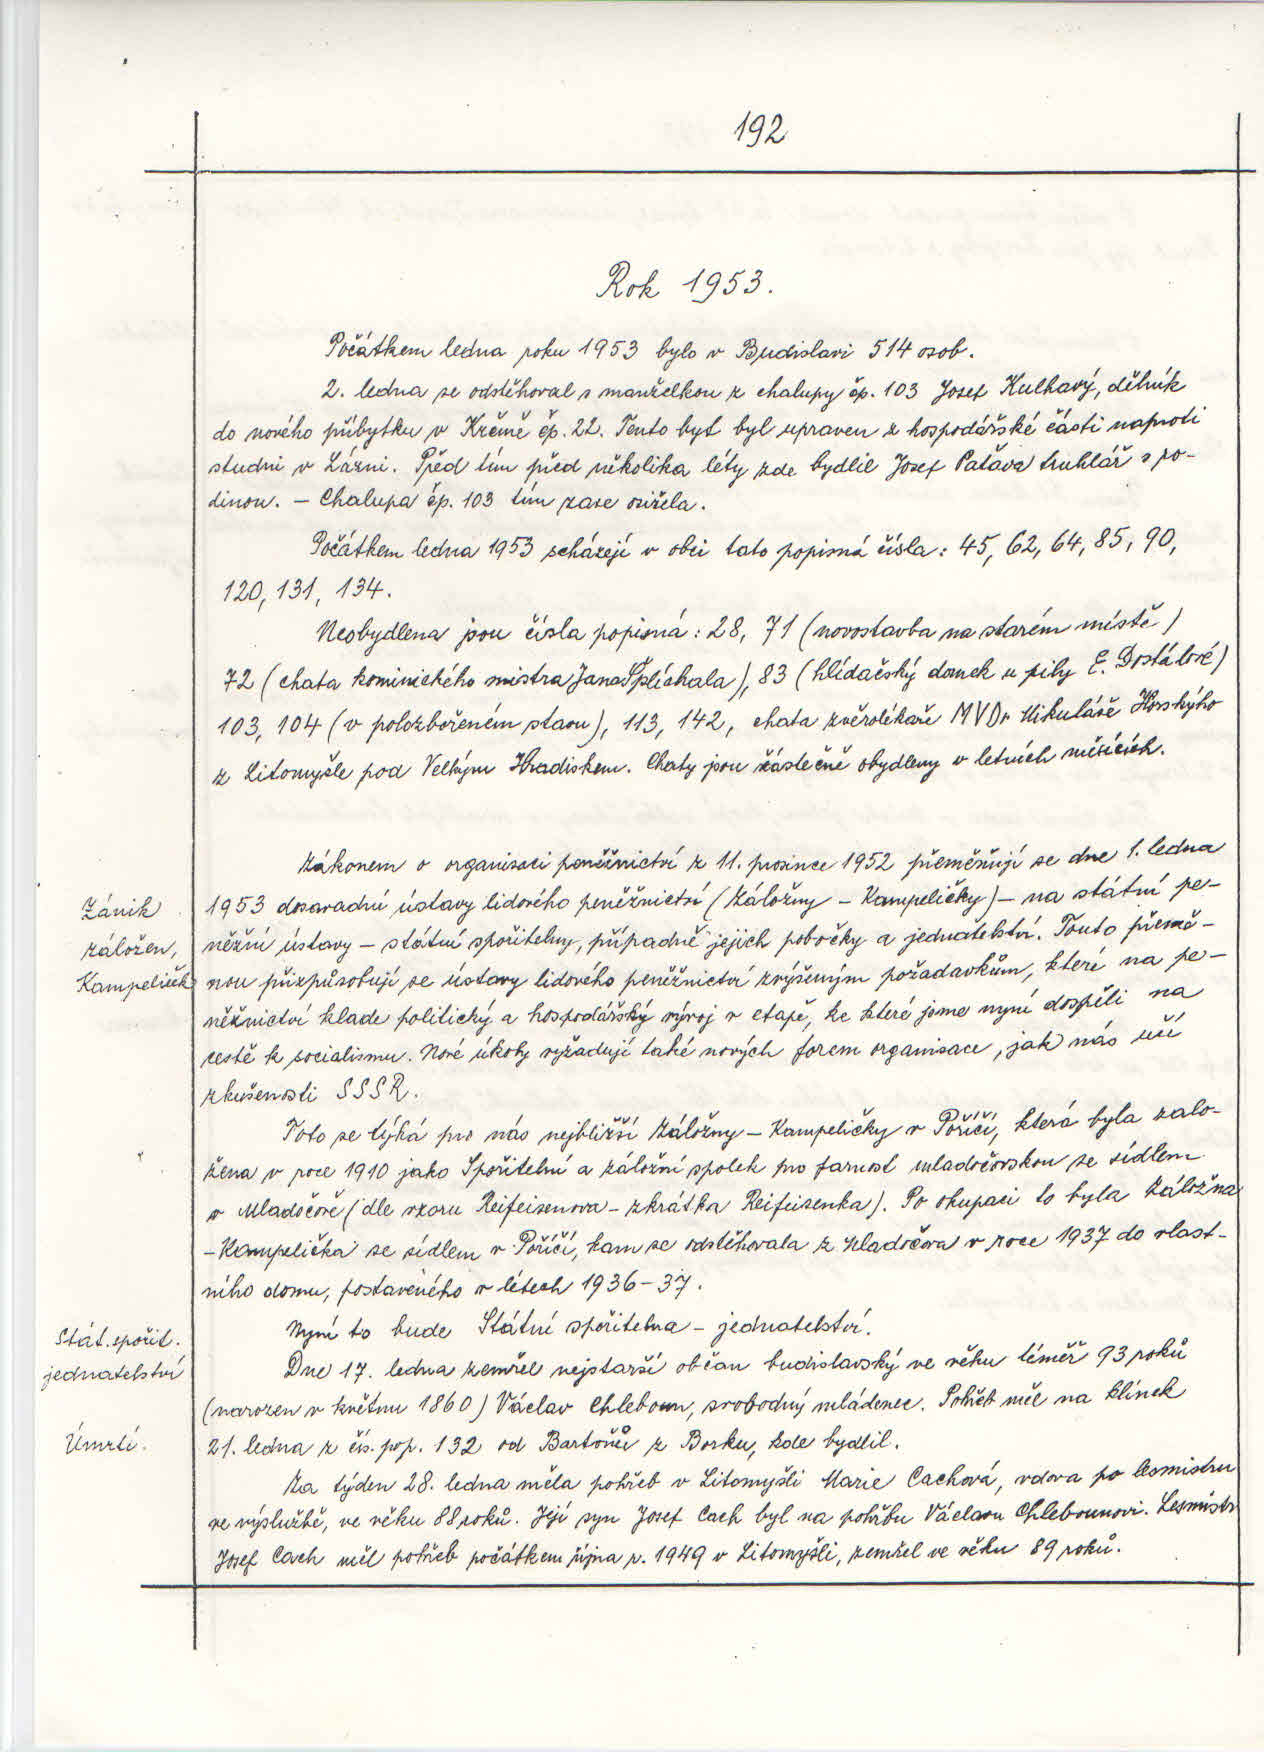 192
Rok 1953.
Počátkem ledna roku 1953 bylo v Budislavi 514 osob.
2. ledna se odstěhoval s manželkou z chalupy čp. 103 Josef Kulhavý, dělník
do nového příbytku v Krčmě čp. 22. Tento byt byl upraven z hospodářské části naproti
studni v Lázni. Před tím před několika léty zde bydlil Josef Patava truhlář s ro-
dinou. – Chalupa čp. 103 tím zase osiřela.
Počátkem ledna 1953 scházejí v obci tato popisná čísla: 45, 62, 64, 85, 90,
120, 131, 134.
Neobydlena jsou čísla popisná: 28, 71 (novostavba na starém místě)
72 (chata kominického mistra Jana Šplíchala), 83 (hlídačský domek u pily E. Dostálové)
103, 104 (v polozbořeném stavu), 113, 142, chata zvěrolékaře MVDr Mikuláše Horského
z Litomyšle pod Velkým Hradiskem. Chaty jsou částečně obydleny v letních měsících.
Zákonem o organisaci peněžnictví z 11. prosince 1952 přeměňují se dne 1. ledna
Zánik
záložen,
Kampeliček
1953 dosavadní ústavy lidového peněžnictví (Záložny – Kampeličky) – na státní pe-
něžní ústavy – státní spořitelny, případně jejich pobočky a jednatelství. Touto přemě-
nou přizpůsobují se ústavy lidového peněžnictví zvýšeným požadavkům, které na pe-
něžnictví klade politický a hospodářský vývoj v etapě, ke které jsme nyní dospěli na
cestě k socialismu. Nové úkoly vyžadují také nových forem organisace, jak nás učí
zkušenosti SSSR.
Toto se týká pro nás nejbližší Záložny – Kampeličky v Poříčí, která byla zalo-
žena v roce 1910 jako Spořitelní a záložní spolek pro farnost mladočovskou se sídlem
v Mladočově (dle vzoru Reifeisenova – zkrátka Reifeisenka). Po okupaci to byla Záložna
– Kampelička se sídlem v Poříčí, kam se odstěhovala z Mladočova v roce 1937 do vlast-
ního domu, postaveného v létech 1936–37.
Stát. spořit.
jednatelství
Nyní to bude Státní spořitelna – jednatelství.
Dne 17. ledna zemřel nejstarší občan budislavský ve věku téměř 93 roků
(narozen v květnu 1860) Václav Chleboun, svobodný mládenec. Pohřeb měl na Klínek
Úmrtí.
21. ledna z čís. pop. 132 od Bartoňů z Borku, kde bydlil.
Za týden 28. ledna měla pohřeb v Litomyšli Marie Cachová, vdova po lesmistru
ve výslužbě, ve věku 88 roků. Její syn Josef Cach byl na pohřbu Václavu Chlebounovi. Lesmistr
Josef Cach měl pohřeb počátkem října r. 1949 v Litomyšli, zemřel ve věku 89 roků.